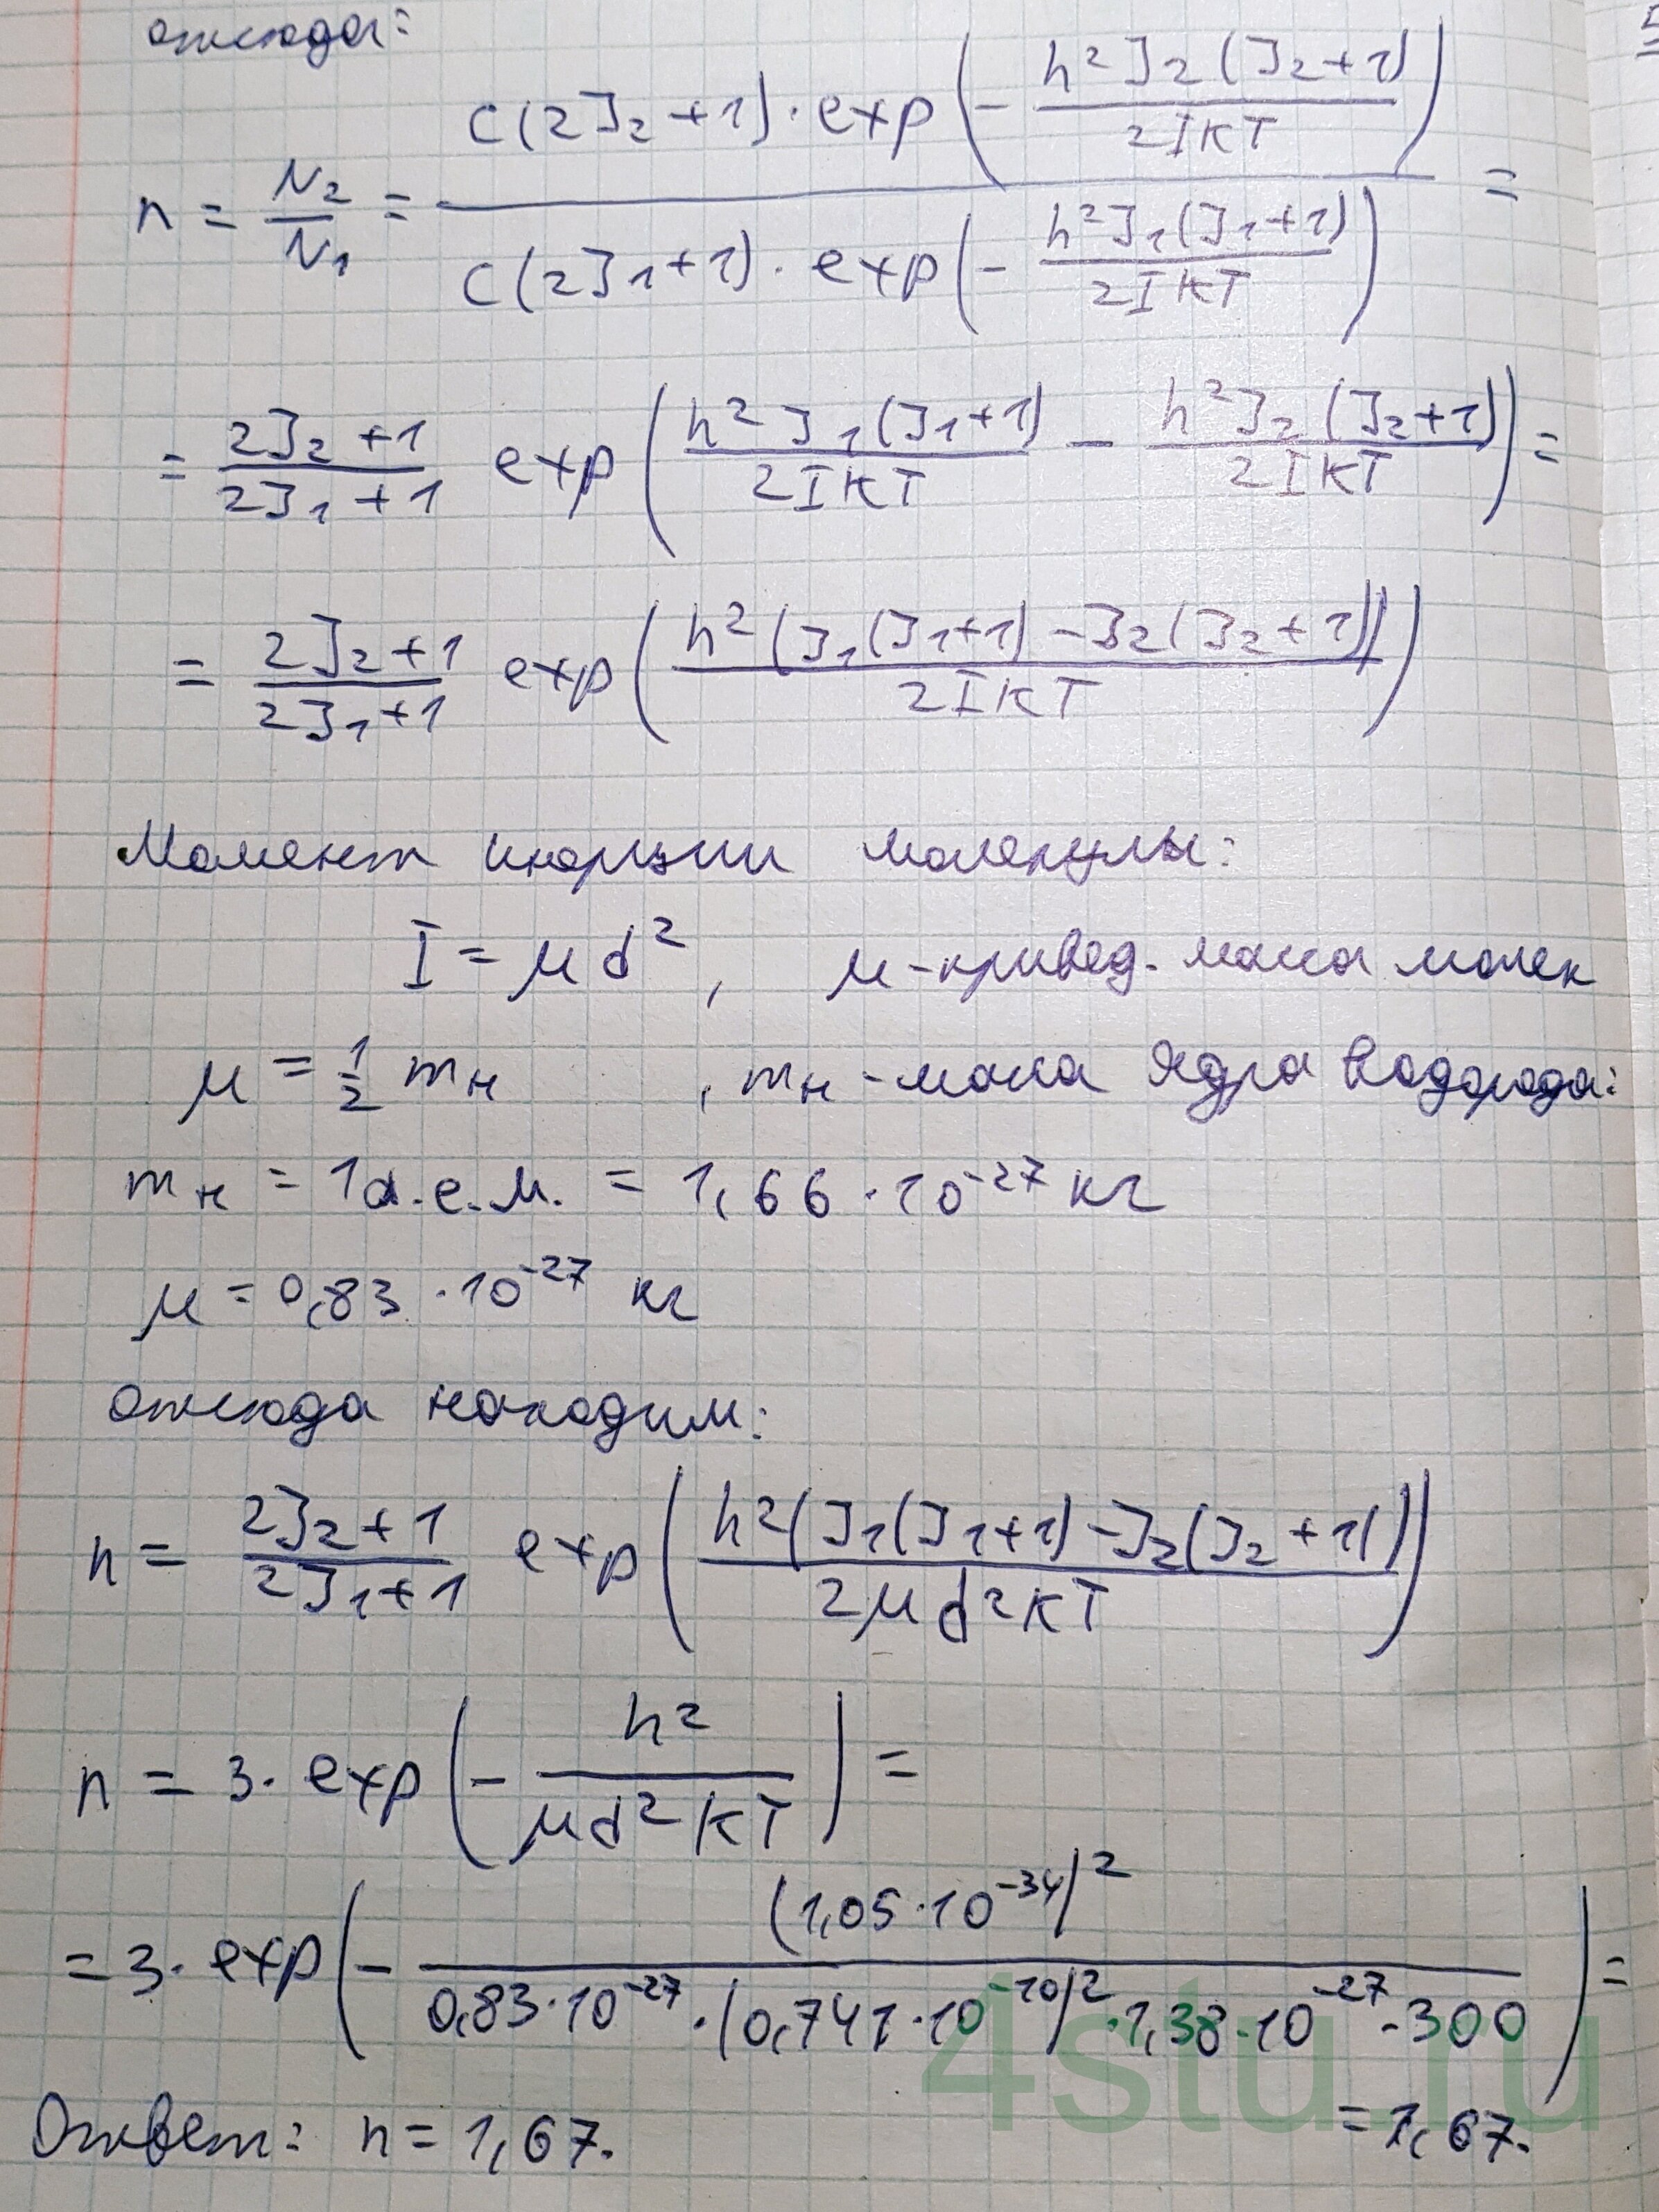 отсюда:
n = N₂/N₁ = (C(2J₂+1)·exp(-ħ²J₂(J₂+1)/2IKT))/(C(2J₁+1)·exp(-ħ²J₁(J₁+1)/2IKT)) =
= (2J₂+1)/(2J₁+1) exp(ħ²J₁(J₁+1)/2IKT - ħ²J₂(J₂+1)/2IKT) =
= (2J₂+1)/(2J₁+1) exp(ħ²(J₁(J₁+1)-J₂(J₂+1))/2IKT)
Момент инерции молекулы:
I = μd², μ-привед. масса молек
μ = ½ mн , mн-масса ядра водорода:
mн = 1а.е.м. = 1,66·10⁻²⁷ кг
μ = 0,83·10⁻²⁷ кг
отсюда находим:
n = (2J₂+1)/(2J₁+1) exp(ħ²(J₁(J₁+1)-J₂(J₂+1))/2μd²KT)
n = 3·exp(-ħ²/μd²KT) =
= 3·exp(-(1,05·10⁻³⁴)²/0,83·10⁻²⁷·(0,741·10⁻¹⁰)²·1,38·10⁻²⁷·300) =
= 1,67.
Ответ: n = 1,67.
4stu.ru